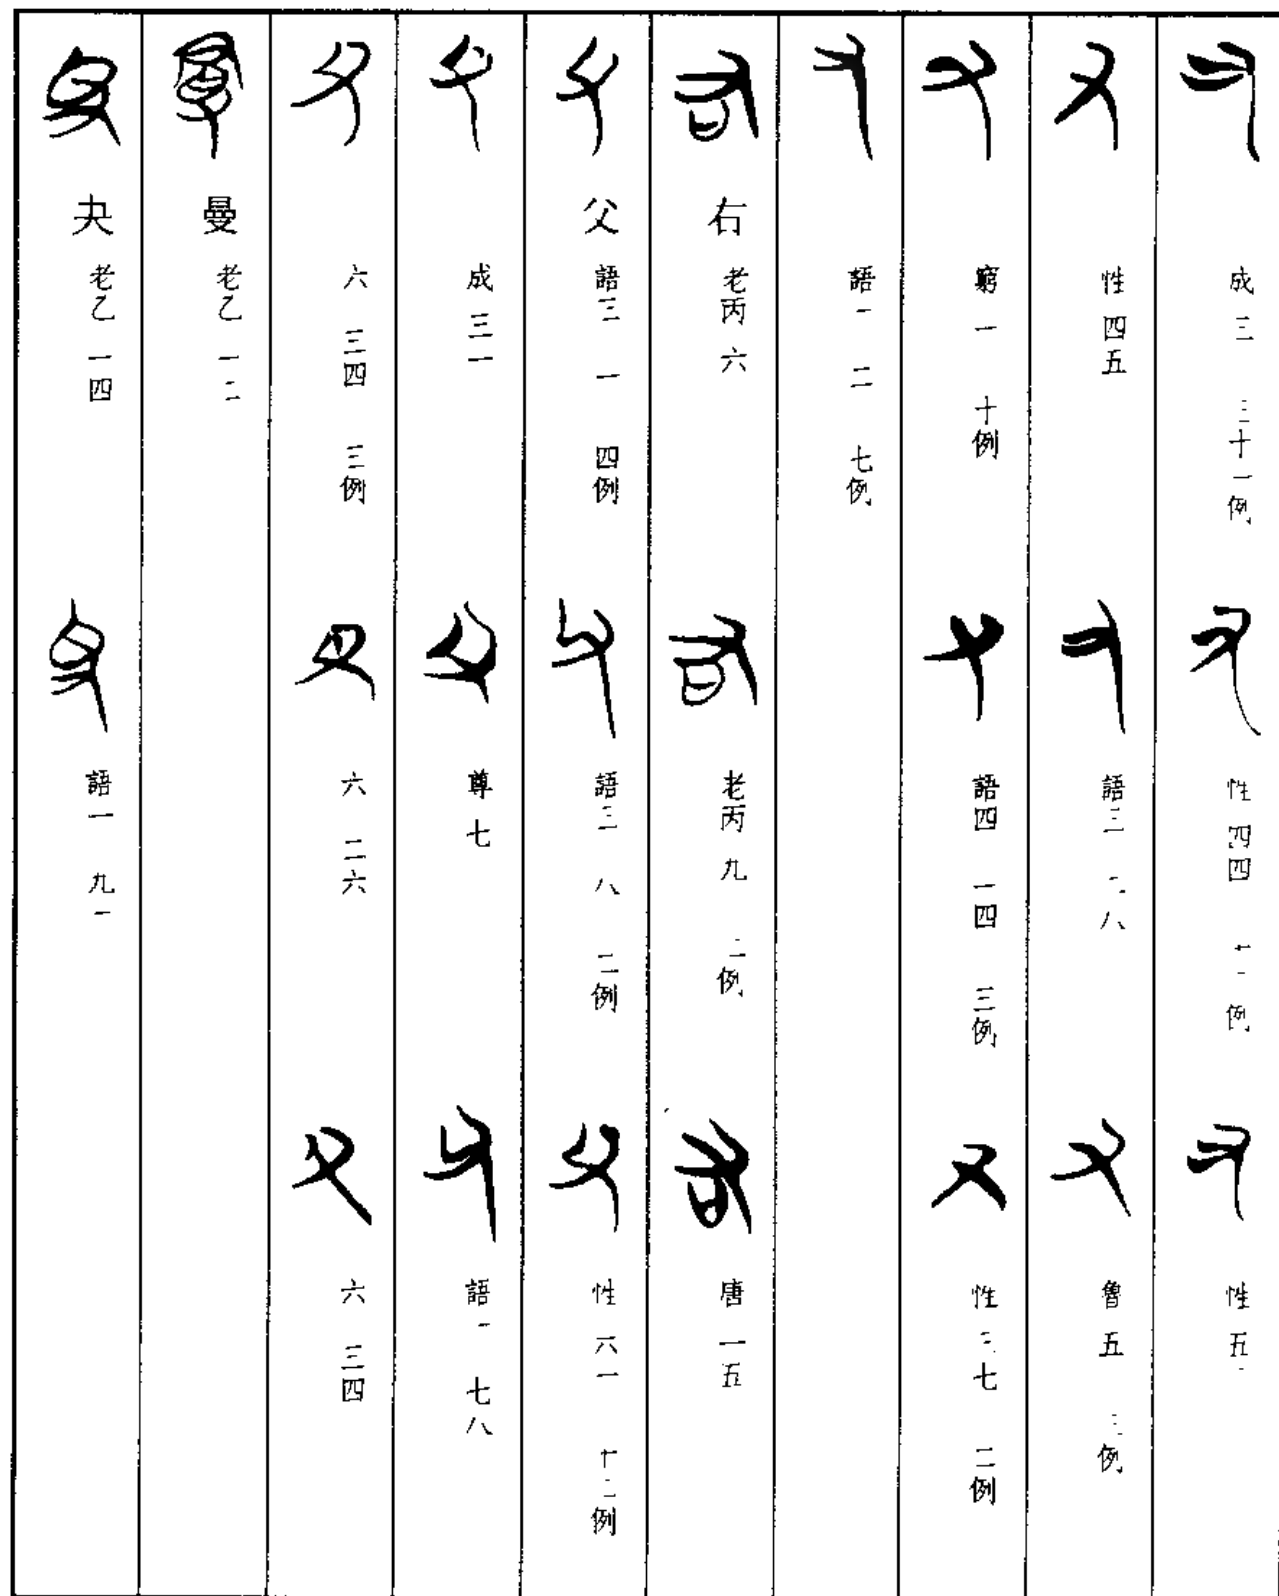 成 三 三十一例
性 四四 例
性 五
性 四五
語三 八
魯 五 三例
窮 一 十例
語四 一四 三例
性 三七 二例
語一 二 七例
右 老丙 六
老丙 九 二例
唐 一五
父 語三 一 四例
語三 八 二例
性 六一 十二例
成 三一
尊 七
語一 七八
六 三四 三例
六 二六
六 三四
曼 老乙 一二
夬 老乙 一四
語一 九一